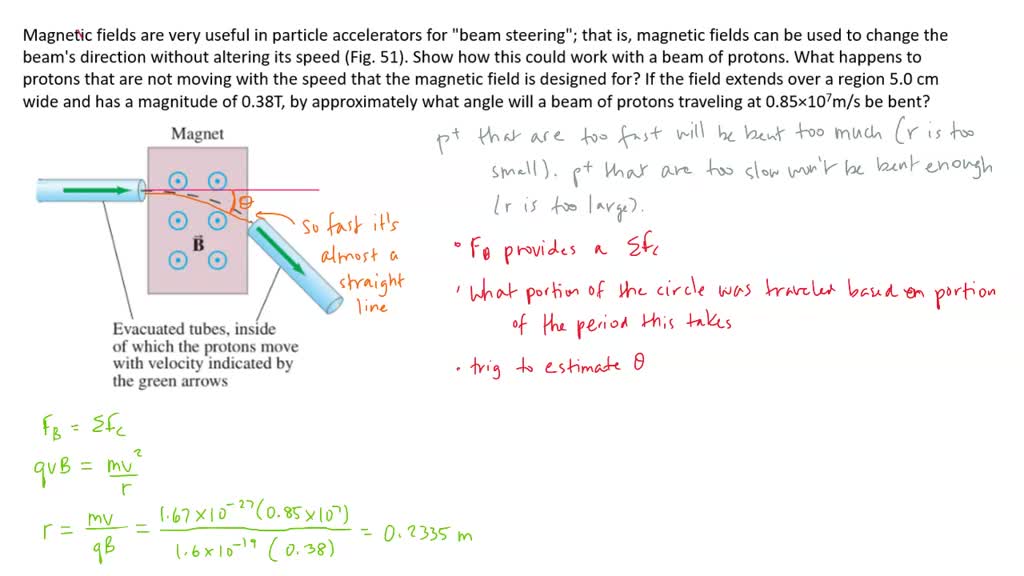 Magnetic fields are very useful in particle accelerators for "beam steering"; that is, magnetic fields can be used to change the
beam's direction without altering its speed (Fig. 51). Show how this could work with a beam of protons. What happens to
protons that are not moving with the speed that the magnetic field is designed for? If the field extends over a region 5.0 cm
wide and has a magnitude of 0.38T, by approximately what angle will a beam of protons traveling at 0.85×10⁷m/s be bent?
Magnet
B⃗
θ
Evacuated tubes, inside
of which the protons move
with velocity indicated by
the green arrows
so fast it's
almost a
straight
line
p⁺ that are too fast will be bent too much (r is too
small). p⁺ that are too slow won't be bent enough
(r is too large).
• F_B provides a ΣF_C
• What portion of the circle was traveled based on portion
of the period this takes
• trig to estimate θ
F_B = ΣF_C
qvB = mv²/r
r = mv/qB = 1.67×10⁻²⁷(0.85×10⁷)/1.6×10⁻¹⁹(0.38) = 0.2335 m